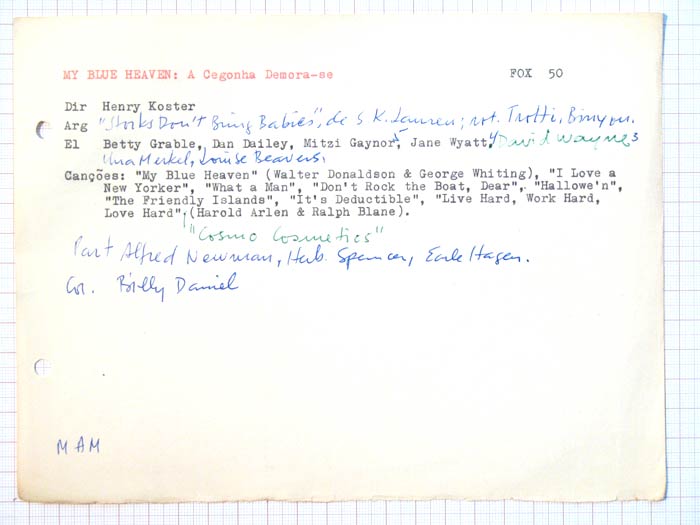 MY BLUE HEAVEN: A Cegonha Demora-se FOX 50
Dir Henry Koster
Arg "Storks Don't Bring Babies", de S K. Lauren; rot. Trotti, Binyon.
El Betty Grable, Dan Dailey, Mitzi Gaynor, Jane Wyatt, David Wayne,
Una Merkel, Louise Beavers.
Canções: "My Blue Heaven" (Walter Donaldson & George Whiting), "I Love a
New Yorker", "What a Man", "Don't Rock the Boat, Dear", "Hallowe'n",
"The Friendly Islands", "It's Deductible", "Live Hard, Work Hard,
Love Hard", (Harold Arlen & Ralph Blane).
"Cosmo Cosmetics"
Part Alfred Newman, Herb. Spencer, Earle Hagen.
Cor. Billy Daniel
MAM